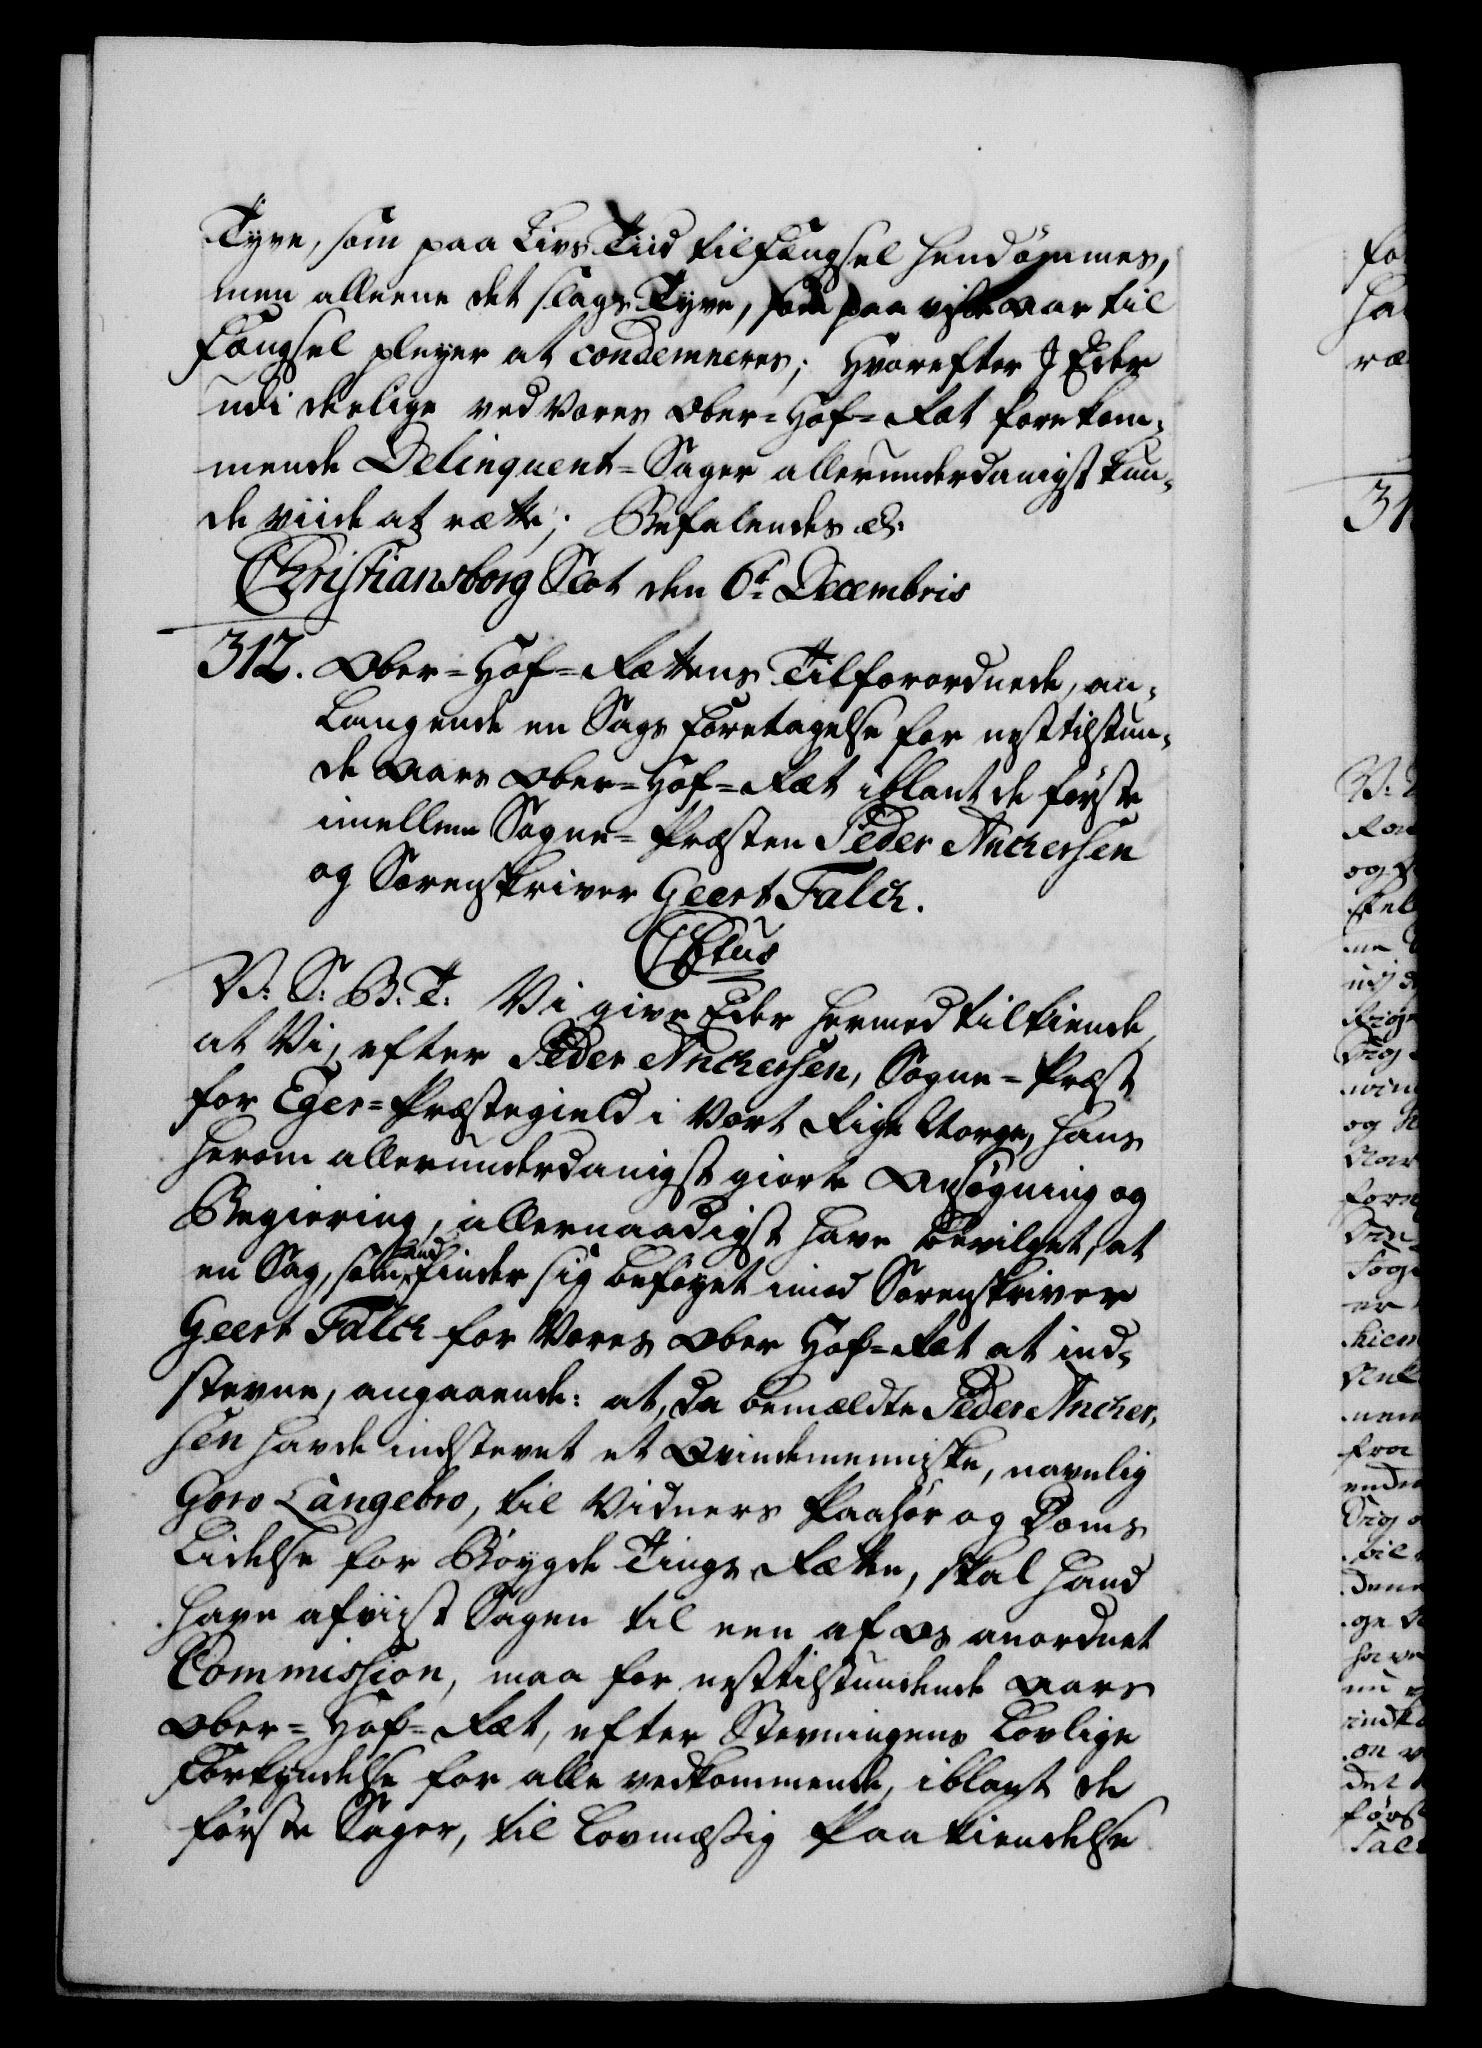 Tyve, som paa Livs Tiid til Fængsel hendømmes,
men alleene det slags Tyve, som paa visse Aar til
Fængsel pleyer at condemneres; Hvorefter I Eder
udi deslige ved Vores Ober-Hof-Ræt forekom-
mende Delinquent-Sager allerunderdanigst kun-
de viide at rætte; Befalendes etc.
Christiansborg Slot den 6te Decembris
312. Ober-Hof-Rættens Tilforordnede, an-
Langende en Sags Foretagelse for nesttilstun-
de Aars Ober-Hof-Ræt iblant de første
imellem Sogne-Præsten Peder Anchersen
og Sorenskriver Geert Falch.
C6tus
V: S: B: T: Vi give Eder hermed tilkiende,
at Vi, efter Peder Anchersen, Sogne-Præst
for Eger-Præstegield i Vort Rige Norge, hans
herom allerunderdanigst giorte Ansøgning og
Begiering, allernaadigst have bevilget, at
en Sag, som hand finder sig beføyet imod Sorenskriver
Geert Falch for Vores Ober Hof-Ræt at ind-
stevne, angaaende: at, da bemældte Peder Ancher-
sen havde indstevnt et Qvindemenniske, navnlig
Goro Langebro, til Vidners Paahør og Doms
Lidelse for Bøygde Tings Rætte, skal hand
have afviist Sagen til een af Os anordnet
Commission, maa for nesttilstundende Aars
Ober-Hof-Ræt, efter Stevningens Lovlige
Forkyndelse for alle vedkommende, iblant de
første Sager, til Lovmæssig Paakiendelse